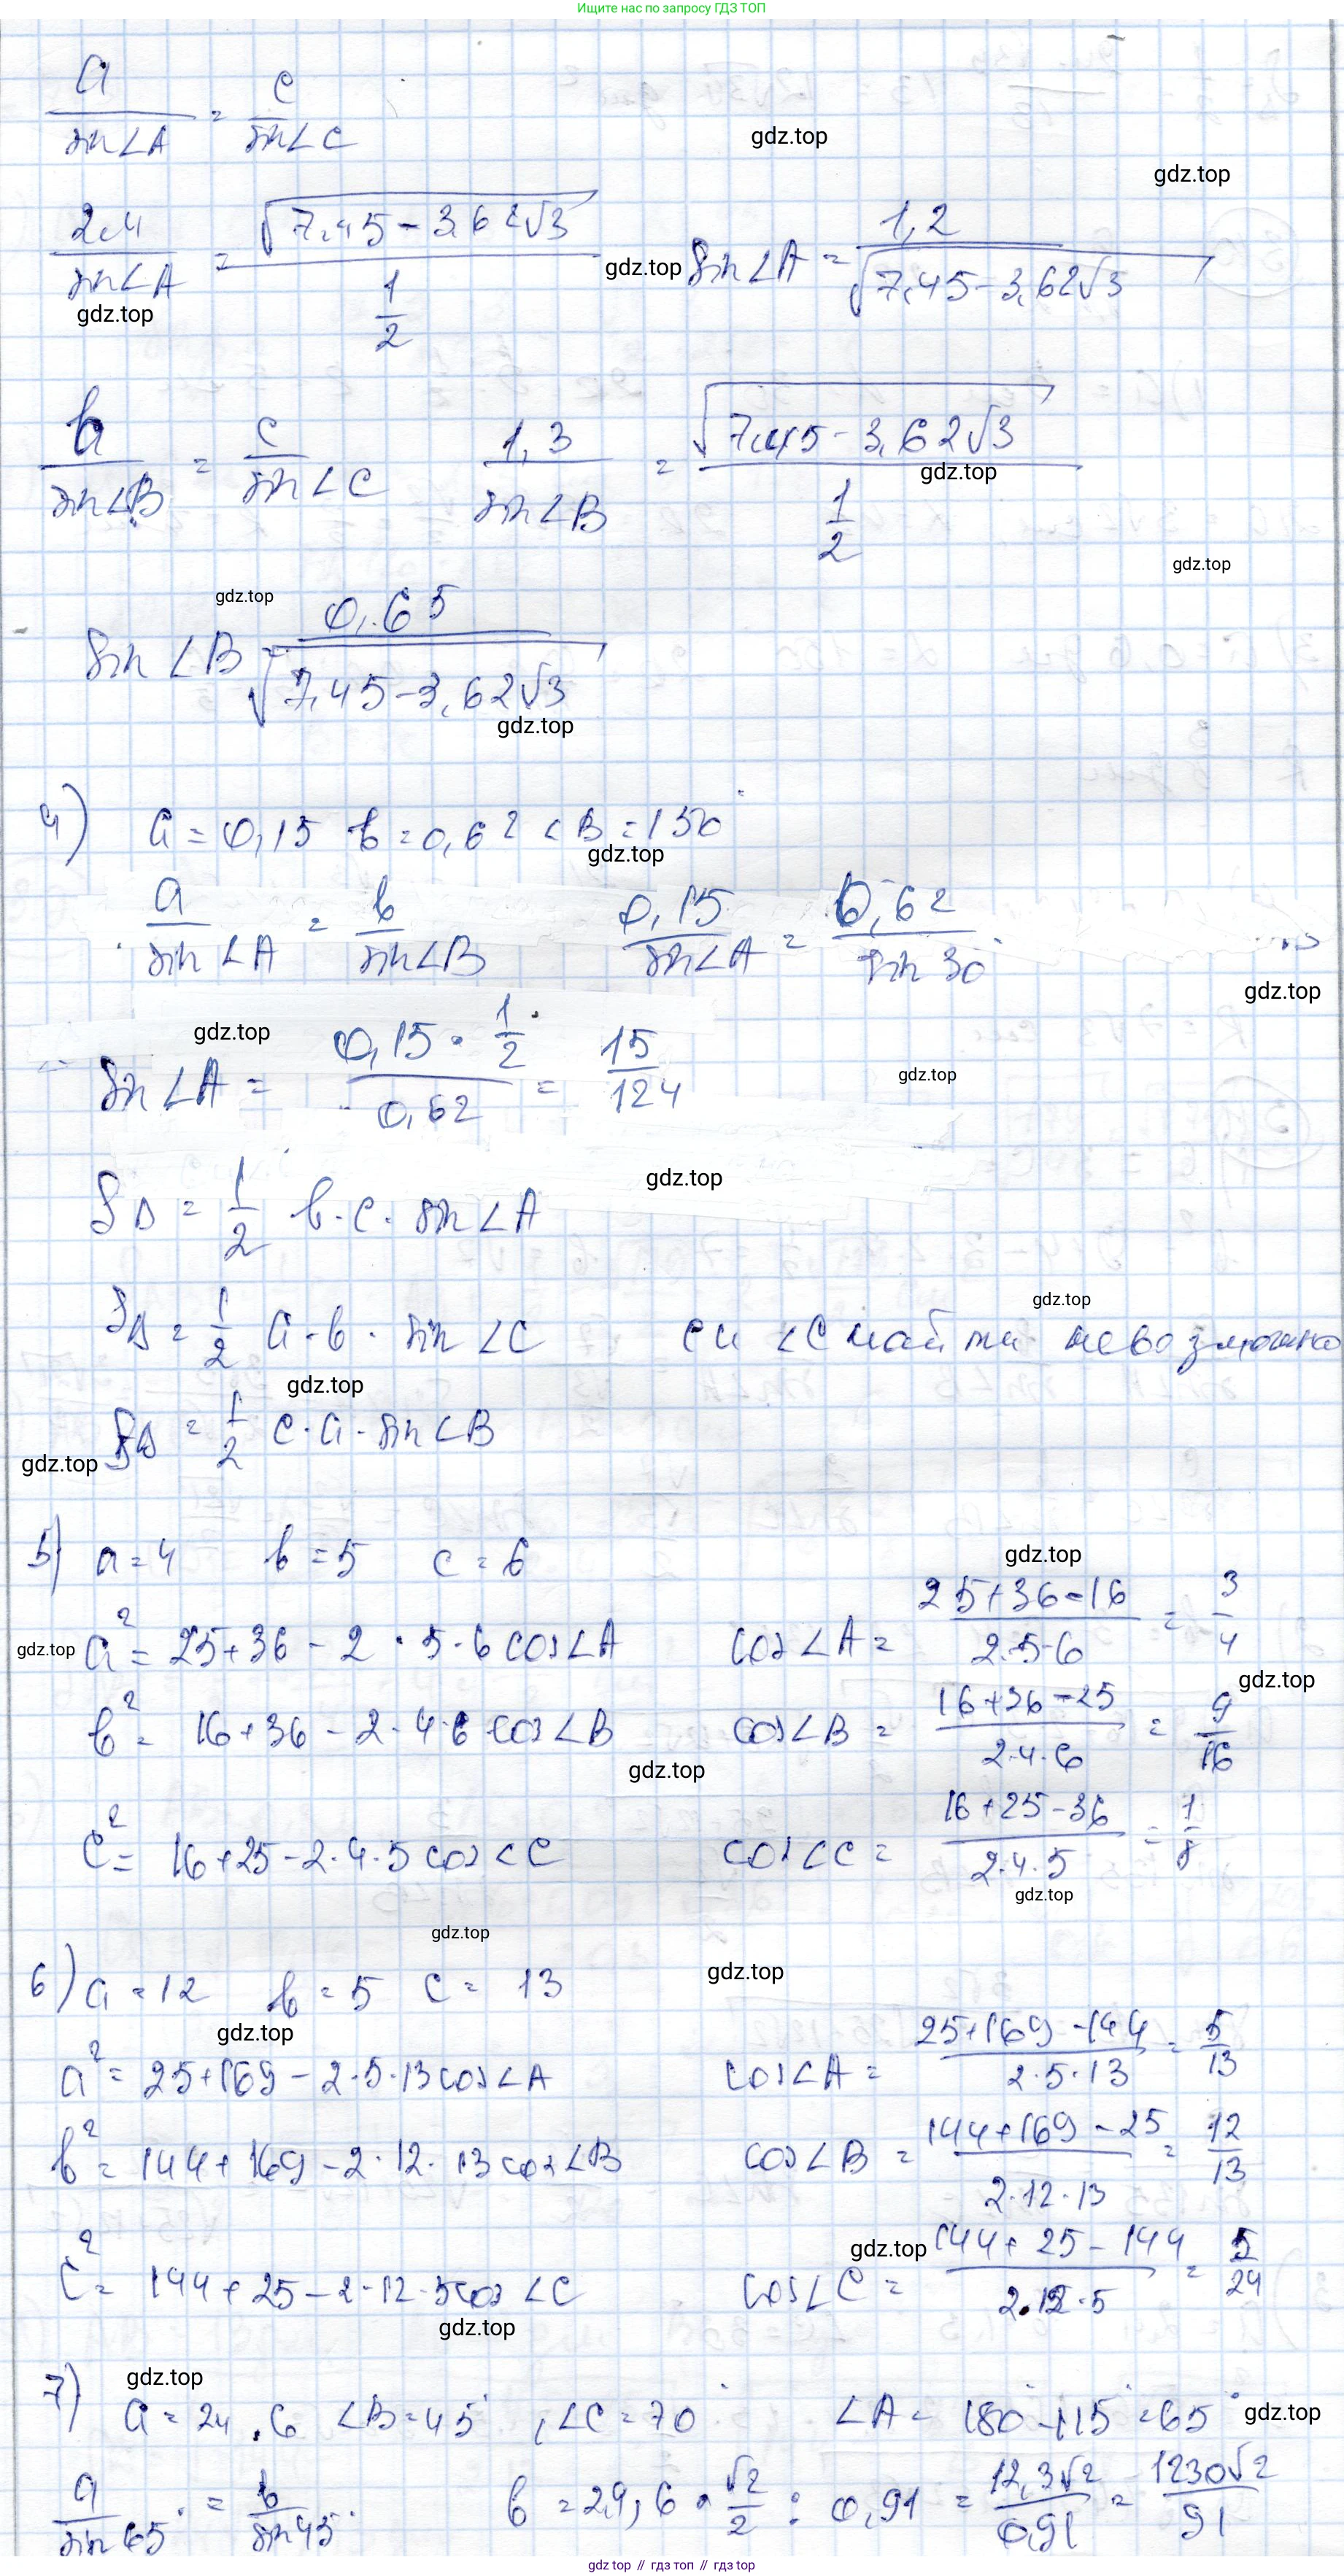 Ищите нас по запросу ГДЗ ТОП
a/sin∠A = c/sin∠C
gdz.top
gdz.top
2,4/sin∠A = √(7,45-3,62√3) / (1/2) gdz.top sin∠A = 1,2/√(7,45-3,62√3)
gdz.top
b/sin∠B = c/sin∠C 1,3/sin∠B = √(7,45-3,62√3) / (1/2)
gdz.top
gdz.top
gdz.top
sin∠B = 0,65/√(7,45-3,62√3)
gdz.top
4) a=0,15 b=0,62 ∠B=150°
gdz.top
a/sin∠A = b/sin∠B 0,15/sin∠A = 0,62/sin 30°
gdz.top
gdz.top
sin∠A = (0,15·1/2)/0,62 = 15/124
gdz.top
gdz.top
SΔ = 1/2 b·c·sin∠A
gdz.top
SΔ = 1/2 a·b·sin∠C c и ∠C найти невозможно
gdz.top
SΔ = 1/2 c·a·sin∠B
gdz.top
5) a=4 b=5 c=6
gdz.top
gdz.top a² = 25+36-2·5·6 cos∠A cos∠A = (25+36-16)/(2·5·6) = 3/4
gdz.top
b² = 16+36-2·4·6 cos∠B cos∠B = (16+36-25)/(2·4·6) = 9/16
gdz.top
c² = 16+25-2·4·5 cos∠C cos∠C = (16+25-36)/(2·4·5) = 1/8
gdz.top
gdz.top
6) a=12 b=5 c=13
gdz.top
gdz.top
a² = 25+169-2·5·13 cos∠A cos∠A = (25+169-144)/(2·5·13) = 5/13
b² = 144+169-2·12·13 cos∠B cos∠B = (144+169-25)/(2·12·13) = 12/13
gdz.top
c² = 144+25-2·12·5 cos∠C cos∠C = (144+25-144)/(2·12·5) = 5/24
gdz.top
gdz.top
7) a=24,6 ∠B=45°, ∠C=70° ∠A=180°-115°=65°
gdz.top
a/sin65° = b/sin45° b=29,6·√2/2 : 0,91 = 12,3√2/0,91 = 1230√2/91
gdz top // гдз топ // gdz top